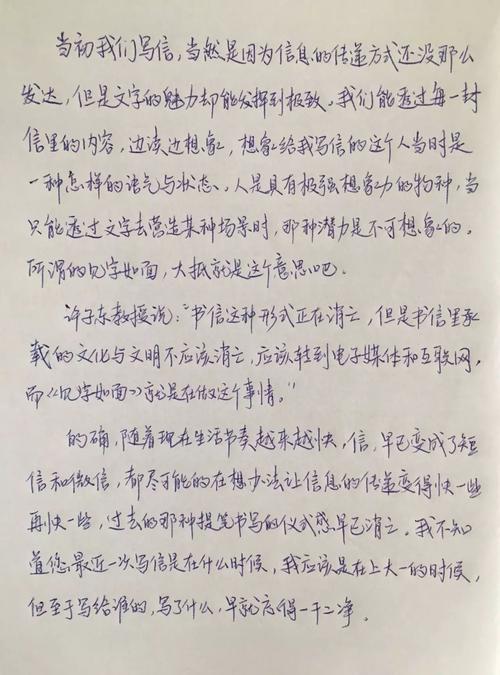 当初我们写信，当然是因为信息的传递方式还没那么
发达，但是文字的魅力却能发挥到极致。我们能透过每一封
信里的内容，边读边想象，想象给我写信的这个人当时是
一种怎样的语气与状态。人是具有极强想象力的物种，当
只能透过文字去营造某种场景时，那种潜力是不可想象的。
所谓的见字如面，大抵就是这个意思吧。
许子东教授说：“书信这种形式正在消亡，但是书信里承
载的文化与文明不应该消亡，应该转到电子媒体和互联网，
而《见字如面》就是在做这个事情。”
的确，随着现在生活节奏越来越快，信，早已变成了短
信和微信，都尽可能的在想办法让信息的传递变得快一些
再快一些，过去的那种提笔书写的仪式感早已消亡。我不知
道您最近一次写信是在什么时候，我应该是在上大一的时候，
但至于写给谁的，写了什么，早就忘得一干二净。